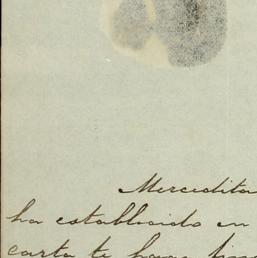 Mercedita
ha establecido en
carta te haga